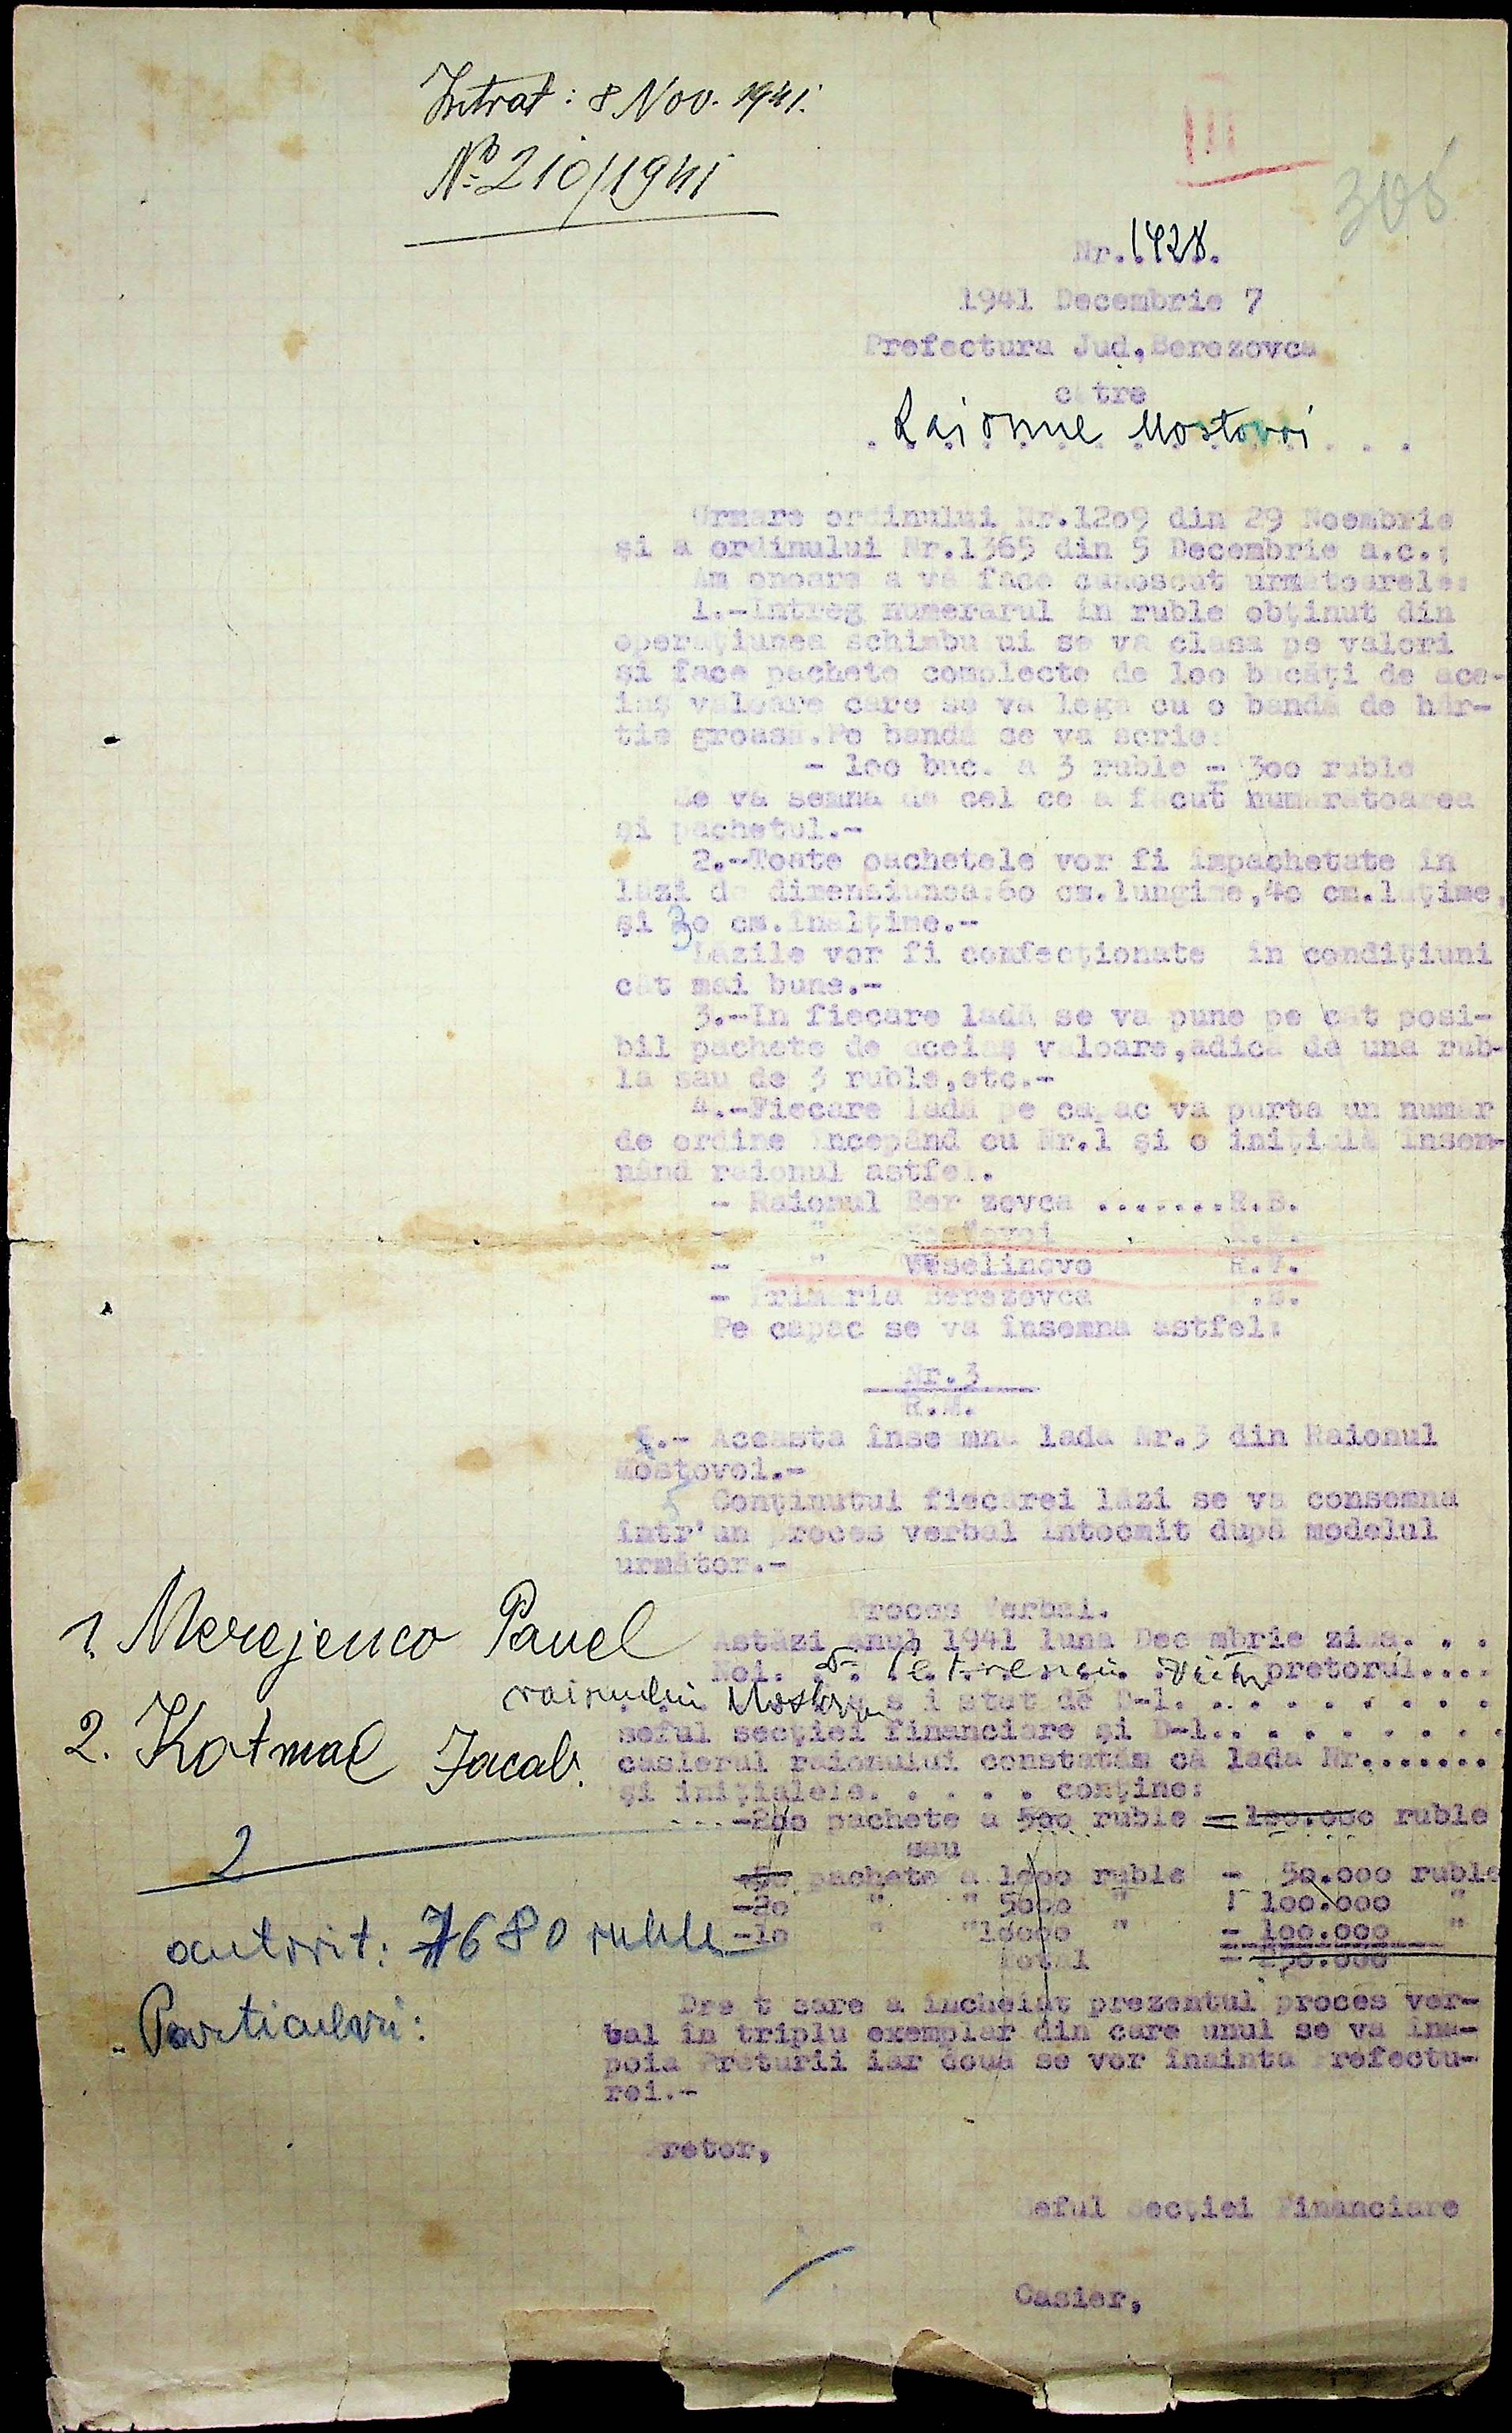 Intrat: 8 Nov. 1941.
No 210/1941
III
Nr. 1428.
1941 Decembrie 7
Prefectura Jud. Berezovca
către
Raionul Mostovoi
Urmare ordinului Nr.12o9 din 29 Noembrie
și a ordinului Nr.1365 din 5 Decembrie a.c.;
Am onoare a vă face cunoscut următoarele:
1.-Intreg numerarul în ruble obținut din
operațiunea schimbului se va clasa pe valori
și face pachete complecte de loo bucăți de ace-
iaș valoare care se va lega cu o bandă de hâr-
tie groasă.Pe bandă se va scrie:
- loo buc. a 3 ruble - 3oo ruble
Se va semna de cel ce a făcut numărătoarea
și pachetul.-
2.-Toate pachetele vor fi împachetate în
lăzi de dimensiunea:6o cm.lungime,4o cm.lățime,
și 3o cm.înalțime.-
Lăzile vor fi confecționate in condițiuni
cât mai bune.-
3.-In fiecare ladă se va pune pe cât posi-
bil pachete de aceiaș valoare,adică de una rub-
la sau de 3 ruble,etc.-
4.-Fiecare ladă pe capac va purta un număr
de ordine începând cu Nr.1 și o inițială însem-
nând raionul astfel.
- Raionul Berezovca .......R.B.
- " Mostovoi R.M.
- " Veselinovo R.V.
- Primăria Berezovca P.B.
Pe capac se va însemna astfel:
Nr.3
R.M.
- Aceasta însemnă lada Nr.3 din Raionul
Mostovoi.-
5 Conținutul fiecărei lăzi se va consemna
într'un proces verbal întocmit după modelul
următor.-
Proces Verbal.
1. Merejenco Pavel
Astăzi anul 1941 luna Decembrie ziua. . .
Noi. . . pretorul....
raionului Mostovoi stat de D-l. . . . . . . . .
2. Kotmal Jacob.
seful secției financiare și D-l. . . . . . . .
casierul raionului constatăm că lada Nr.......
și inițialele. . . . . conține:
-2oo pachete a 5oo ruble = loo.ooo ruble
sau
2
-5o pachete a looo ruble - 5o.ooo ruble
-2o " " 5ooo " - loo.ooo "
autorit: 7680 ruble
-lo " "loooo " - loo.ooo "
Total - 25o.ooo
Particulari:
Drept care a încheiat prezentul proces ver-
bal în triplu exemplar din care unul se va îna-
poia Preturii iar două se vor înainta Prefectu-
rei.-
Pretor,
Seful Secției Financiare
Casier,